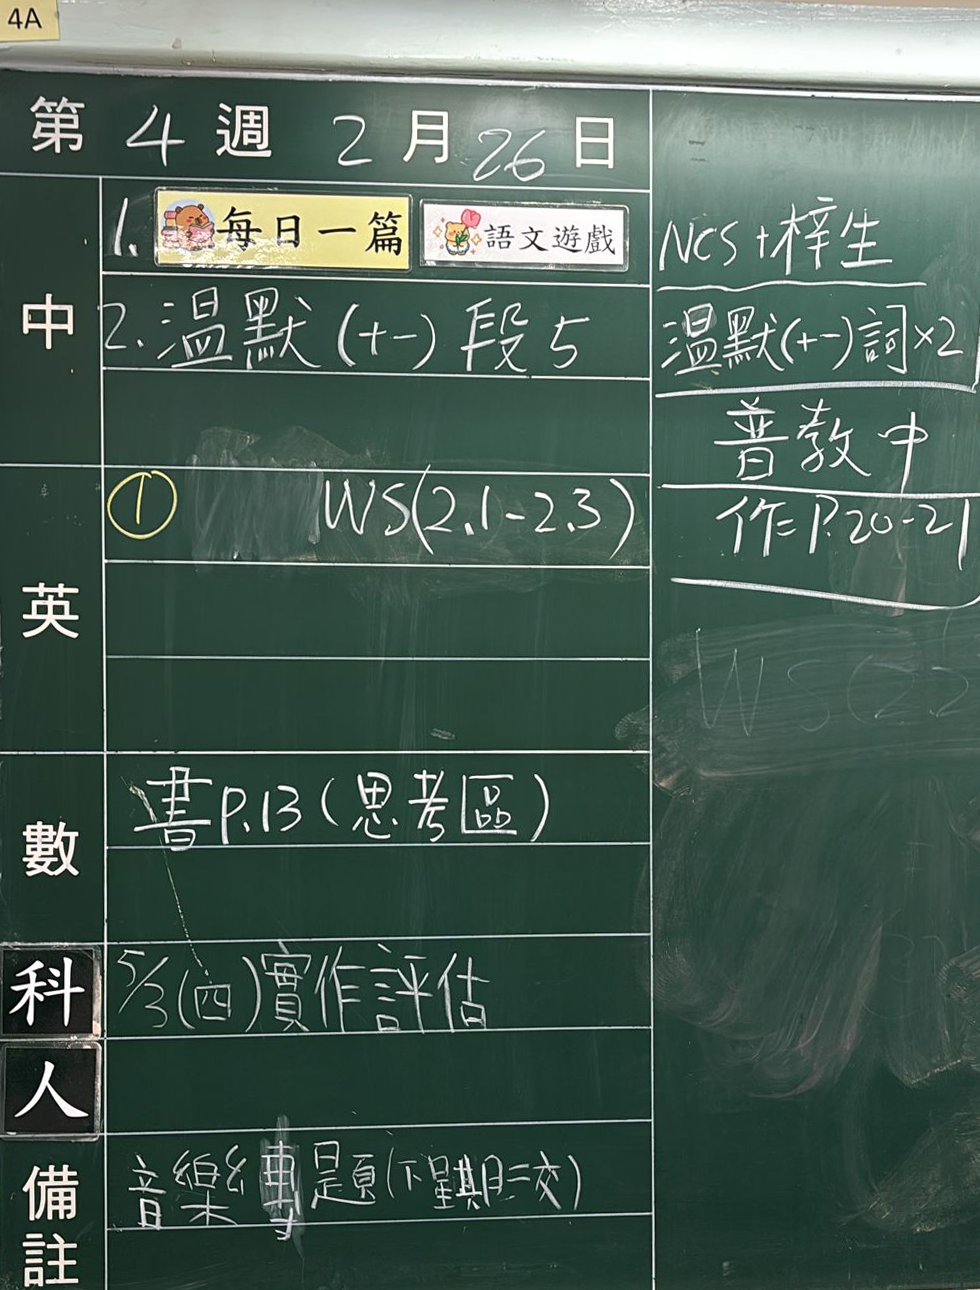 4A
第 4 週 2 月 26 日
中
1. 每日一篇 語文遊戲
2. 溫默(十一)段5
英
① WS(2.1-2.3)
數
書P.13(思考區)
科
5/3(四)實作評估
人
備註
音樂 專題(下星期二交)
NCS+梓生
溫默(十一)詞×2
普教中
作=P.20-21
WS(2.2